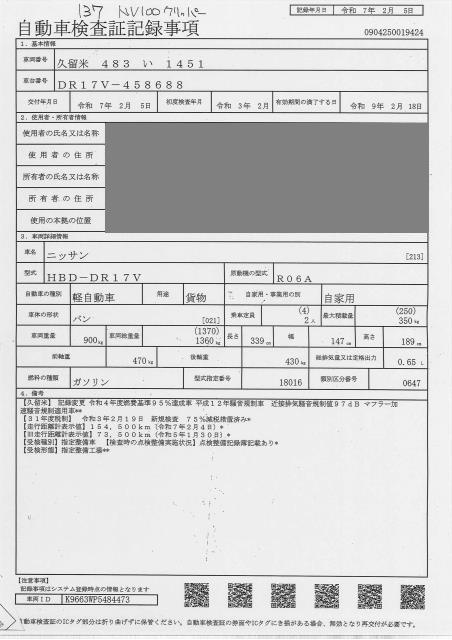 137 NV100クリッパー
記録年月日 令和 7年 2月 5日
自動車検査証記録事項
0904250019424
1. 基本情報
車両番号 久留米 483 い 1451
車台番号 DR17V-458688
交付年月日 令和 7年 2月 5日 初度検査年月 令和 3年 2月 有効期間の満了する日 令和 9年 2月 18日
2. 使用者・所有者情報
使用者の氏名又は名称
使用者の住所
所有者の氏名又は名称
所有者の住所
使用の本拠の位置
3. 車両詳細情報
車名 ニッサン [213]
型式 HBD-DR17V 原動機の型式 R06A
自動車の種別 軽自動車 用途 貨物 自家用・事業用の別 自家用
車体の形状 バン [021] 乗車定員 (4) 2人 最大積載量 (250) 350kg
車両重量 900kg 車両総重量 (1370) 1360kg 長さ 339cm 幅 147cm 高さ 189cm
前軸重 470kg 後軸重 430kg 総排気量又は定格出力 0.65 L
燃料の種類 ガソリン 型式指定番号 18016 類別区分番号 0647
4. 備考
【久留米】 記録変更 令和4年度燃費基準95%達成車 平成12年騒音規制車 近接排気騒音規制値97dB マフラー加
速騒音規制適用車**
【31年度税制】 令和3年2月19日 新規検査 75%減税措置済み*
【走行距離計表示値】154,500km(令和7年2月4日)*
【旧走行距離計表示値】73,500km(令和5年1月30日)*
【受検種別】指定整備車 【検査時の点検整備実施状況】点検整備記録簿記載あり*
【受検形態】指定整備工場**
【注意事項】
記録事項はシステム登録時点の情報となります
車両ID K9663WP5484473
自動車検査証のICタグ部分は折り曲げずに保管ください。自動車検査証の券面やICタグにき損がある場合、無効となり再交付が必要です。